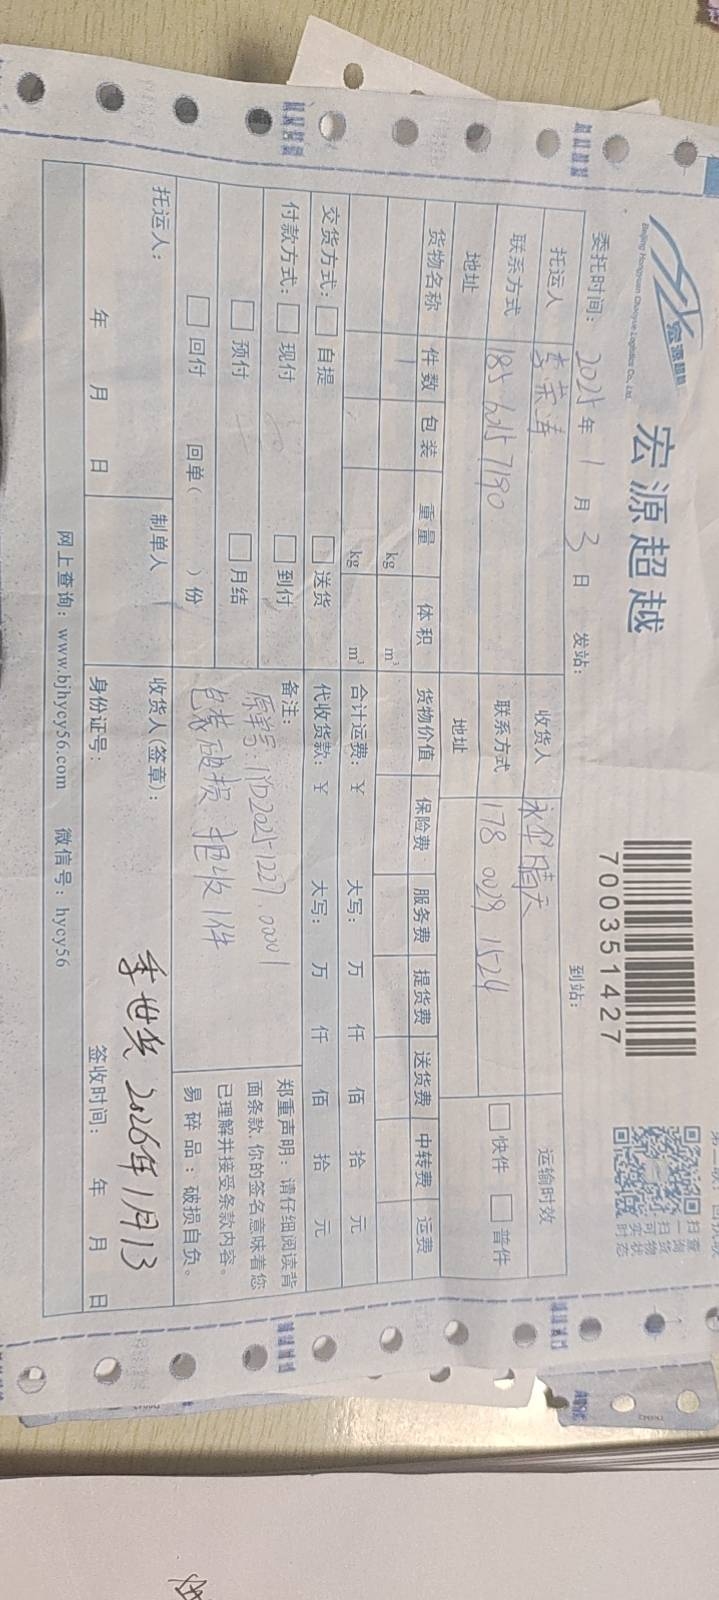 宏源超越
Beijing Hongyuan Chaoyue Logistics Co., Ltd.
宏源超越
700351427
扫一扫
查询货物
可实时状态
委托时间: 2025年 1月 3日 发站: 到站:
托运人 收货人 永华晴天 运输时效
联系方式 185 6257190 联系方式 178 0029 1524 快件 普件
地址 地址
货物名称 件数 包装 重量 体积 货物价值 保险费 服务费 提货费 送货费 中转费 运费
1 kg m³
kg m³ 合计运费: ¥ 大写: 万 仟 佰 拾 元
交货方式: 自提 送货 代收货款: ¥ 大写: 万 仟 佰 拾 元
付款方式: 现付 到付 备注: 原单号: MD20251227.00001
预付 月结 包装破损 拒收1件
回付 回单( )份
郑重声明: 请仔细阅读背
面条款, 你的签名意味着您
已理解并接受条款内容。
易碎品: 破损自负。
托运人: 制单人 收货人(签章): 2026年1月13
年 月 日 身份证号: 签收时间: 年 月 日
网上查询: www.bjhycy56.com 微信号: hycy56